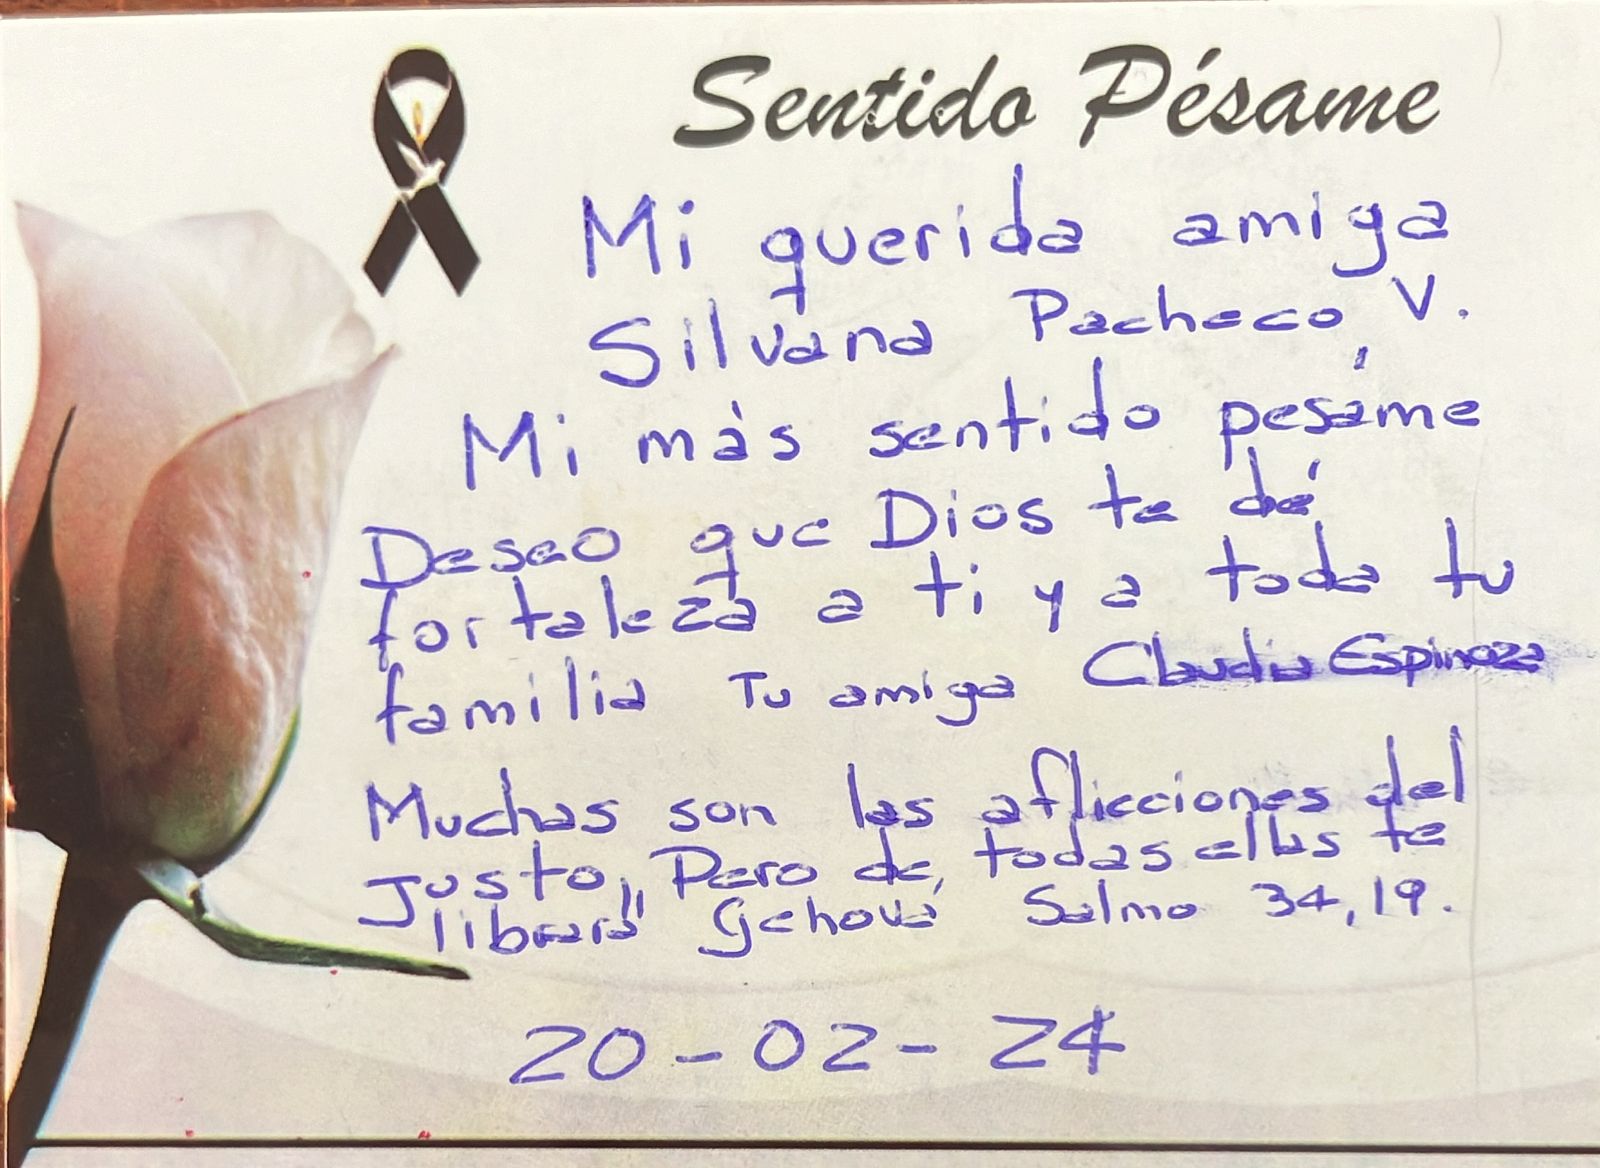 Sentido Pésame
Mi querida amiga
Silvana Pacheco V.
Mi más sentido pesáme
Deseo que Dios te dé
fortaleza a ti y a toda tu
familia Tu amiga Claudia Espinoza
Muchas son las aflicciones del
justo,, Pero de, todas ellas te
librará" Jehová Salmo 34,19.
20-02-24